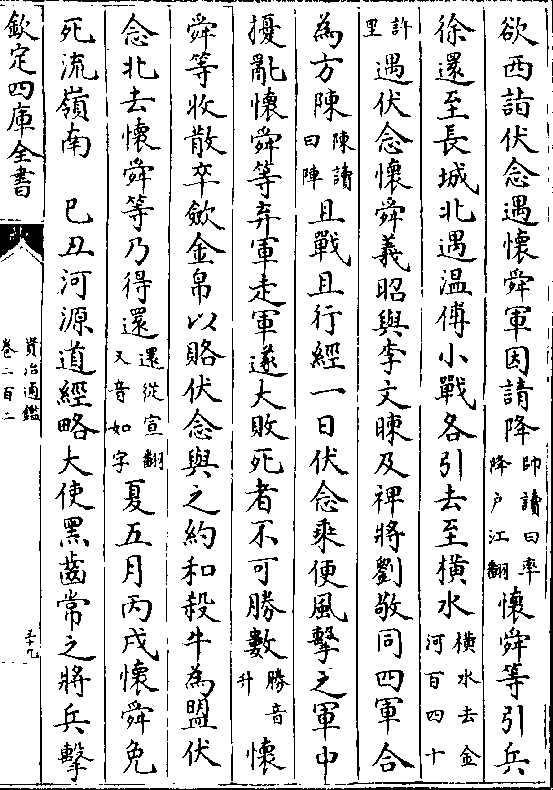 欲西詣伏念遇懷舜軍因請降帥讀曰率降户江翻懷舜等引兵
徐還至長城北遇温傅小戰各引去至横水横水去金河百四十
里許遇伏念懷舜義昭與李文暕及裨將劉敬同四軍合
為方陳陳讀曰陣且戰且行經一日伏念乘便風擊之軍中
擾亂懷舜等弃軍走軍遂大敗死者不可勝數勝音升懷
舜等收散卒歛金帛以賂伏念與之約和殺牛為盟伏
念北去懷舜等乃得還還從宣翻又音如字夏五月丙戌懷舜免
死流嶺南 己丑河源道經略大使黑齒常之將兵擊
欽定四庫全書
資治通鑑
卷二百二
三十九